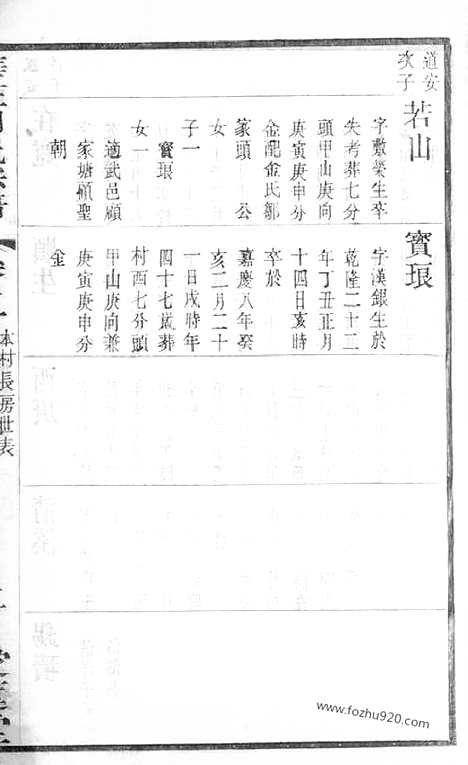 道安
次子
若山
字敷榮生卒
失考葬七分
頭甲山庚向
庚寅庚申分
金配金氏鄒
篆頭 公
女
子一
寳琅
女一
適武邑顧
家塘頎聖
朝
寳琅
字漢銀生於
乾隆二十二
年丁丑正月
十四日亥時
卒於
嘉慶八年癸
亥二月二十
一日戌時年
四十七歲葬
村西七分頭
甲山庚向兼
庚寅庚申分
金
本村長房世表
www.fozhu920.com